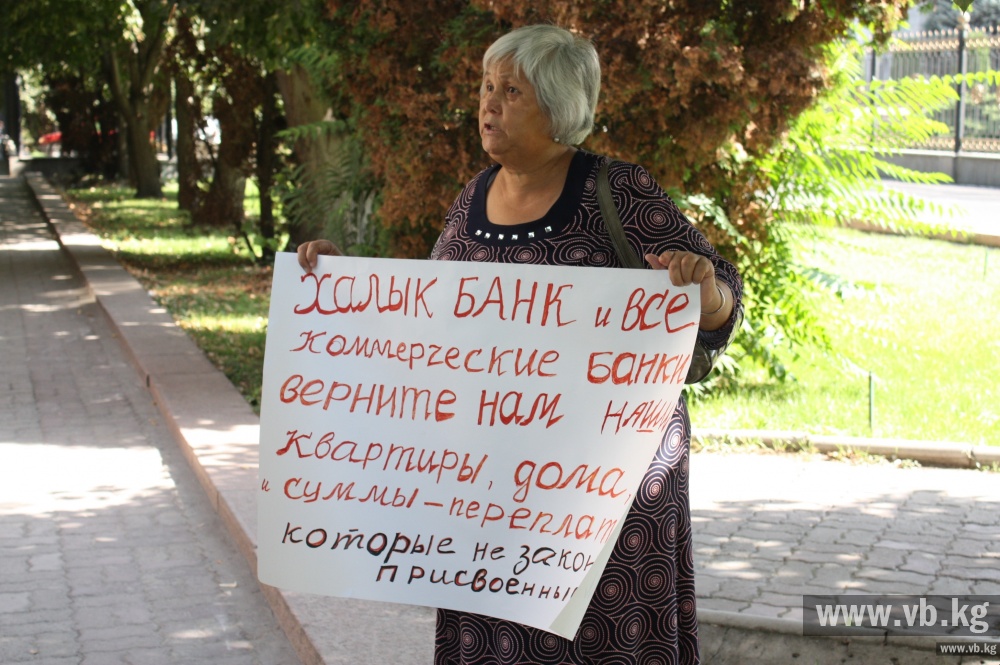 ХАЛЫК БАНК и ВСЕ
коммерческие банки
верните нам наши
квартиры, дома,
и суммы – переплат
которые не закон
присвоены
www.vb.kg
www.vb.kg